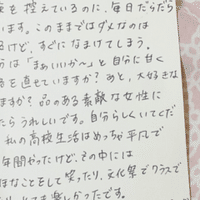 を控えているのに、毎日だらだら
ます。このままではダメなのは
るけど、すぐになまけてしまう。
は「まぁいいか〜」と自分に甘く
を直せていますか？あと、大好きな
ますか？品のある素敵な女性に
たらうれしいです。自分らしくいてくだ
私の高校生活はめっちゃ平凡で
年間やったけど、その中には
なことをして笑ったり、文化祭でクラスで
かったです。